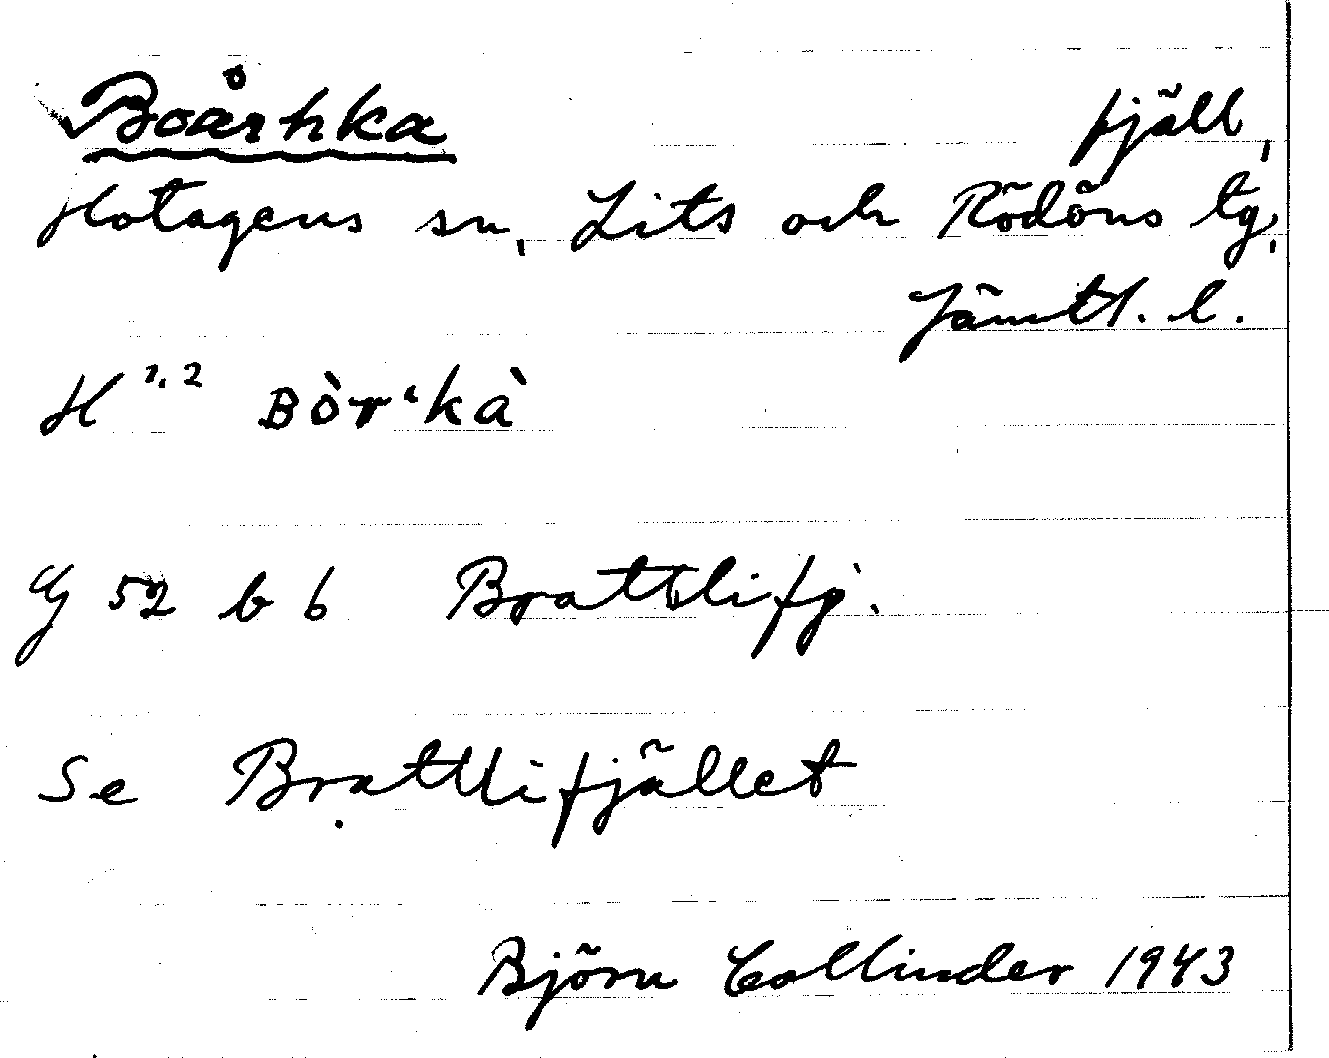 Boårhka fjäll,
Hotagens sn, Lits och Rödöns tg,
Jämtl. l.
H 1, 2 Bòrʻkà
G 52 b 6 Brattlifj.
Se Brattlifjället
Björn Collinder 1943